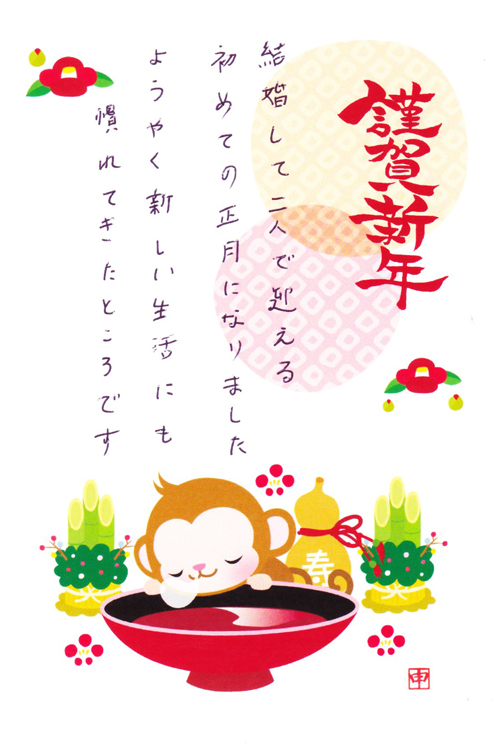 謹賀新年
結婚して二人で迎える
初めての正月になりました
ようやく新しい生活にも
慣れてきたところです
寿
申